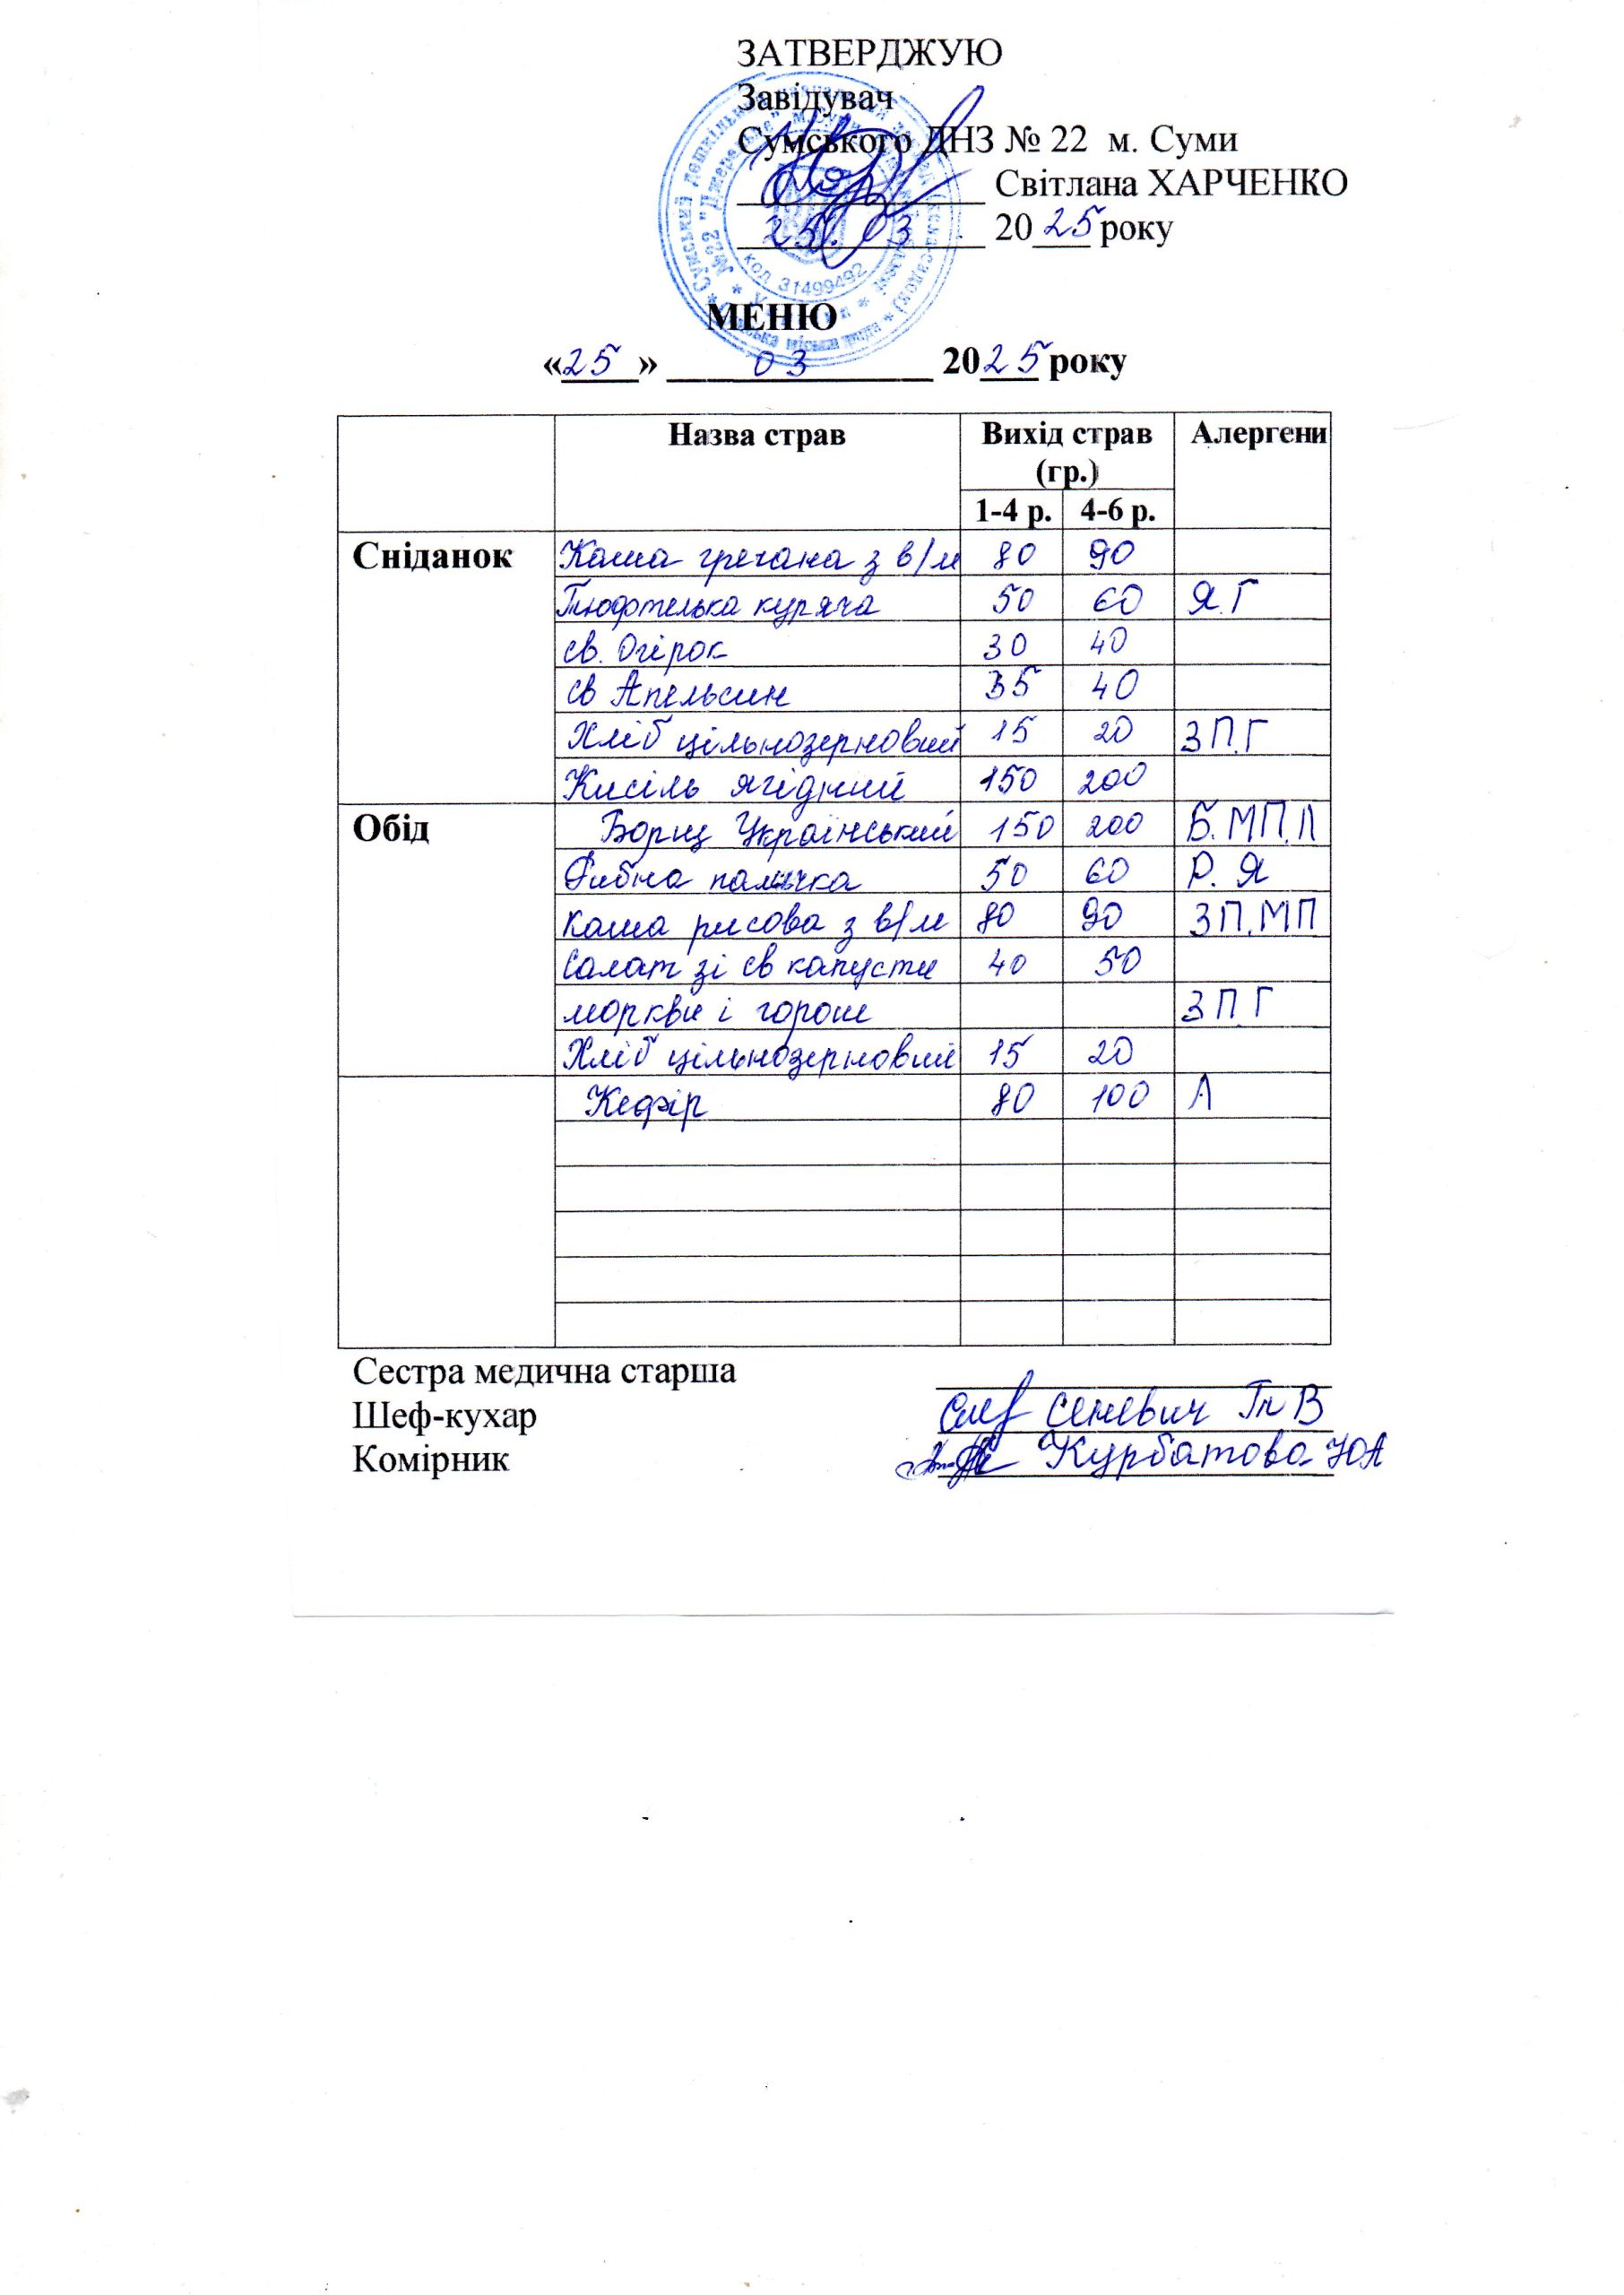 ЗАТВЕРДЖУЮ
Завідувач
Сумського ДНЗ № 22 м. Суми
Світлана ХАРЧЕНКО
25.03 2025 року
код 31499492
МЕНЮ
«25» 03 2025 року
Назва страв Вихід страв (гр.) Алергени
1-4 р. 4-6 р.
Сніданок Каша гречана з в/м 80 90
Тюфтелька куряча 50 60 Я.Г
св. Огірок 30 40
св Апельсин 35 40
Хліб цільнозерновий 15 20 ЗП.Г
Кисіль ягідний 150 200
Обід Борщ Український 150 200 Б.МП.Л
Рибна паличка 50 60 Р. Я
Каша рисова з в/м 80 90 ЗП.МП
Салат зі св капусти 40 50
моркви і горош ЗП Г
Хліб цільнозерновий 15 20
Кефір 80 100 Л
Сестра медична старша
Шеф-кухар Сеневич Тп В
Комірник Курбатова ЮА